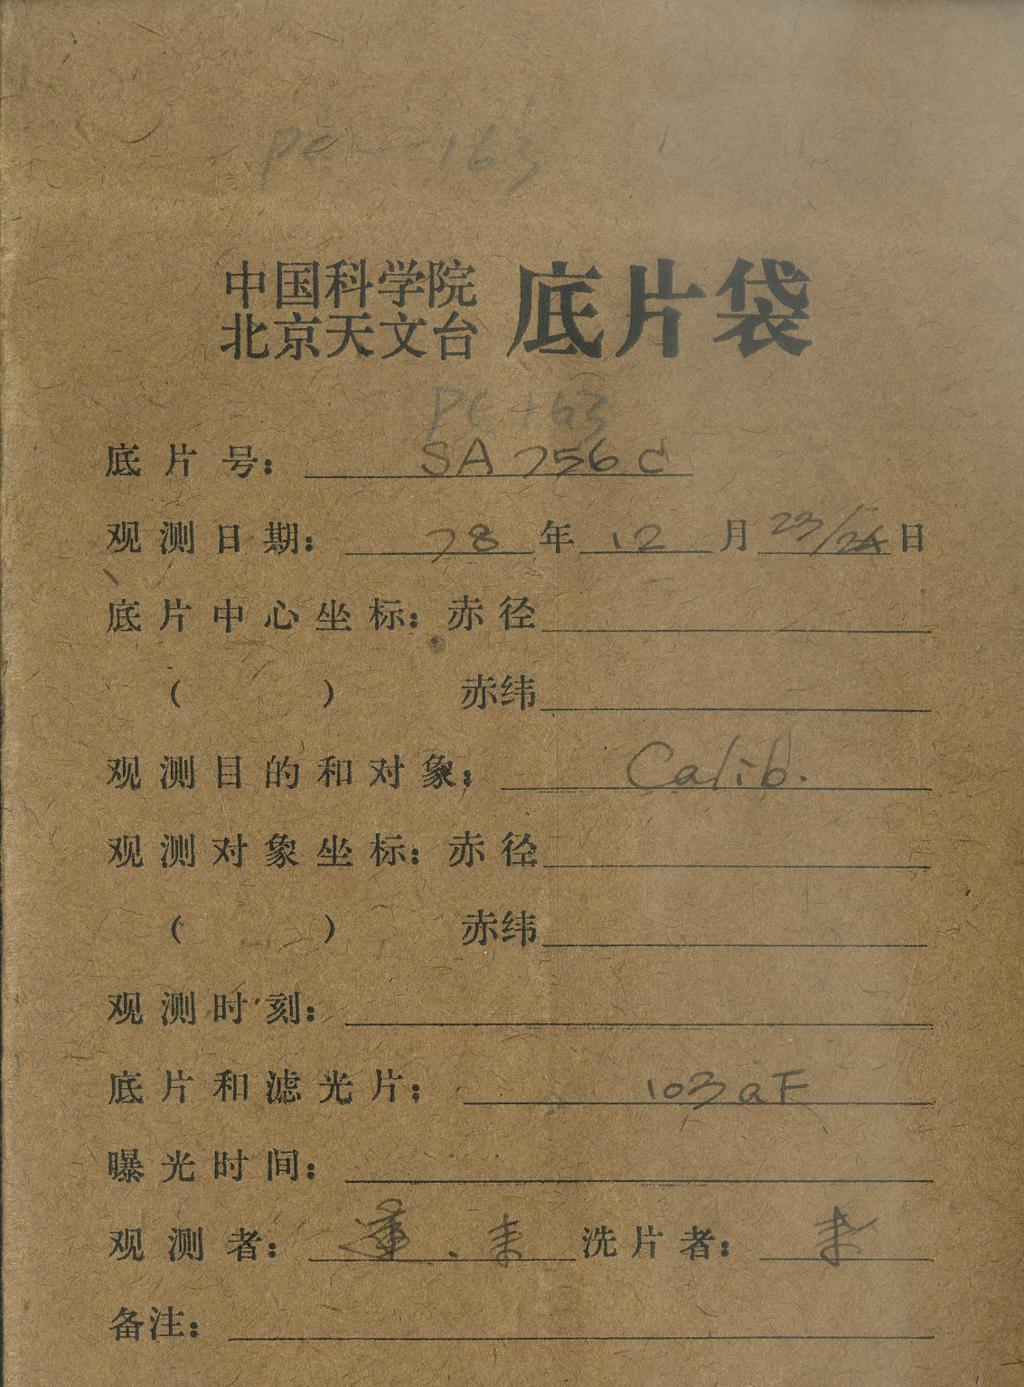 PE—163
中国科学院
北京天文台 底片袋
PE 163
底片号： SA 756 C
观测日期： 78 年 12 月 23/24 日
底片中心坐标：赤径
（ ） 赤纬
观测目的和对象： Calib.
观测对象坐标：赤径
（ ） 赤纬
观测时刻：
底片和滤光片： 103aF
曝光时间：
观测者： 洗片者：
备注：